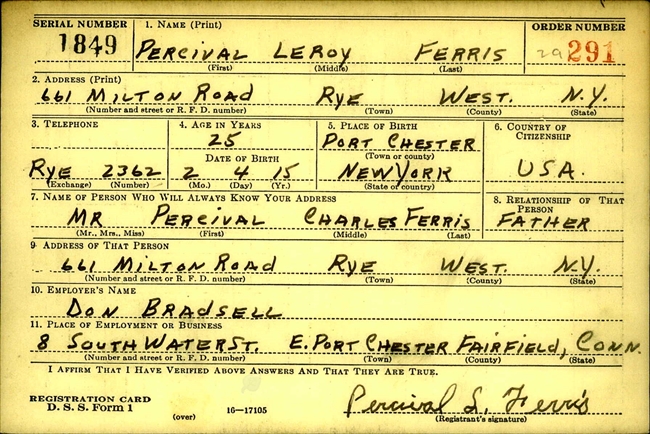 SERIAL NUMBER 1. NAME (Print) ORDER NUMBER
1849 PERCIVAL LEROY FERRIS 291
(First) (Middle) (Last)
2. ADDRESS (Print)
661 MILTON ROAD RYE WEST. N.Y.
(Number and street or R. F. D. number) (Town) (County) (State)
3. TELEPHONE 4. AGE IN YEARS 5. PLACE OF BIRTH 6. COUNTRY OF CITIZENSHIP
25 PORT CHESTER
DATE OF BIRTH (Town or county)
RYE 2362 2 4 15 NEW YORK USA.
(Exchange) (Number) (Mo.) (Day) (Yr.) (State or country)
7. NAME OF PERSON WHO WILL ALWAYS KNOW YOUR ADDRESS 8. RELATIONSHIP OF THAT PERSON
MR PERCIVAL CHARLES FERRIS FATHER
(Mr., Mrs., Miss) (First) (Middle) (Last)
9. ADDRESS OF THAT PERSON
661 MILTON ROAD RYE WEST. N.Y.
(Number and street or R. F. D. number) (Town) (County) (State)
10. EMPLOYER'S NAME
DON BRADSELL
11. PLACE OF EMPLOYMENT OR BUSINESS
8 SOUTH WATER ST. E. PORT CHESTER FAIRFIELD, CONN.
(Number and street or R. F. D. number) (Town) (County) (State)
I AFFIRM THAT I HAVE VERIFIED ABOVE ANSWERS AND THAT THEY ARE TRUE.
REGISTRATION CARD
D. S. S. Form 1 (over) 16—17105 Percival L. Ferris
(Registrant's signature)